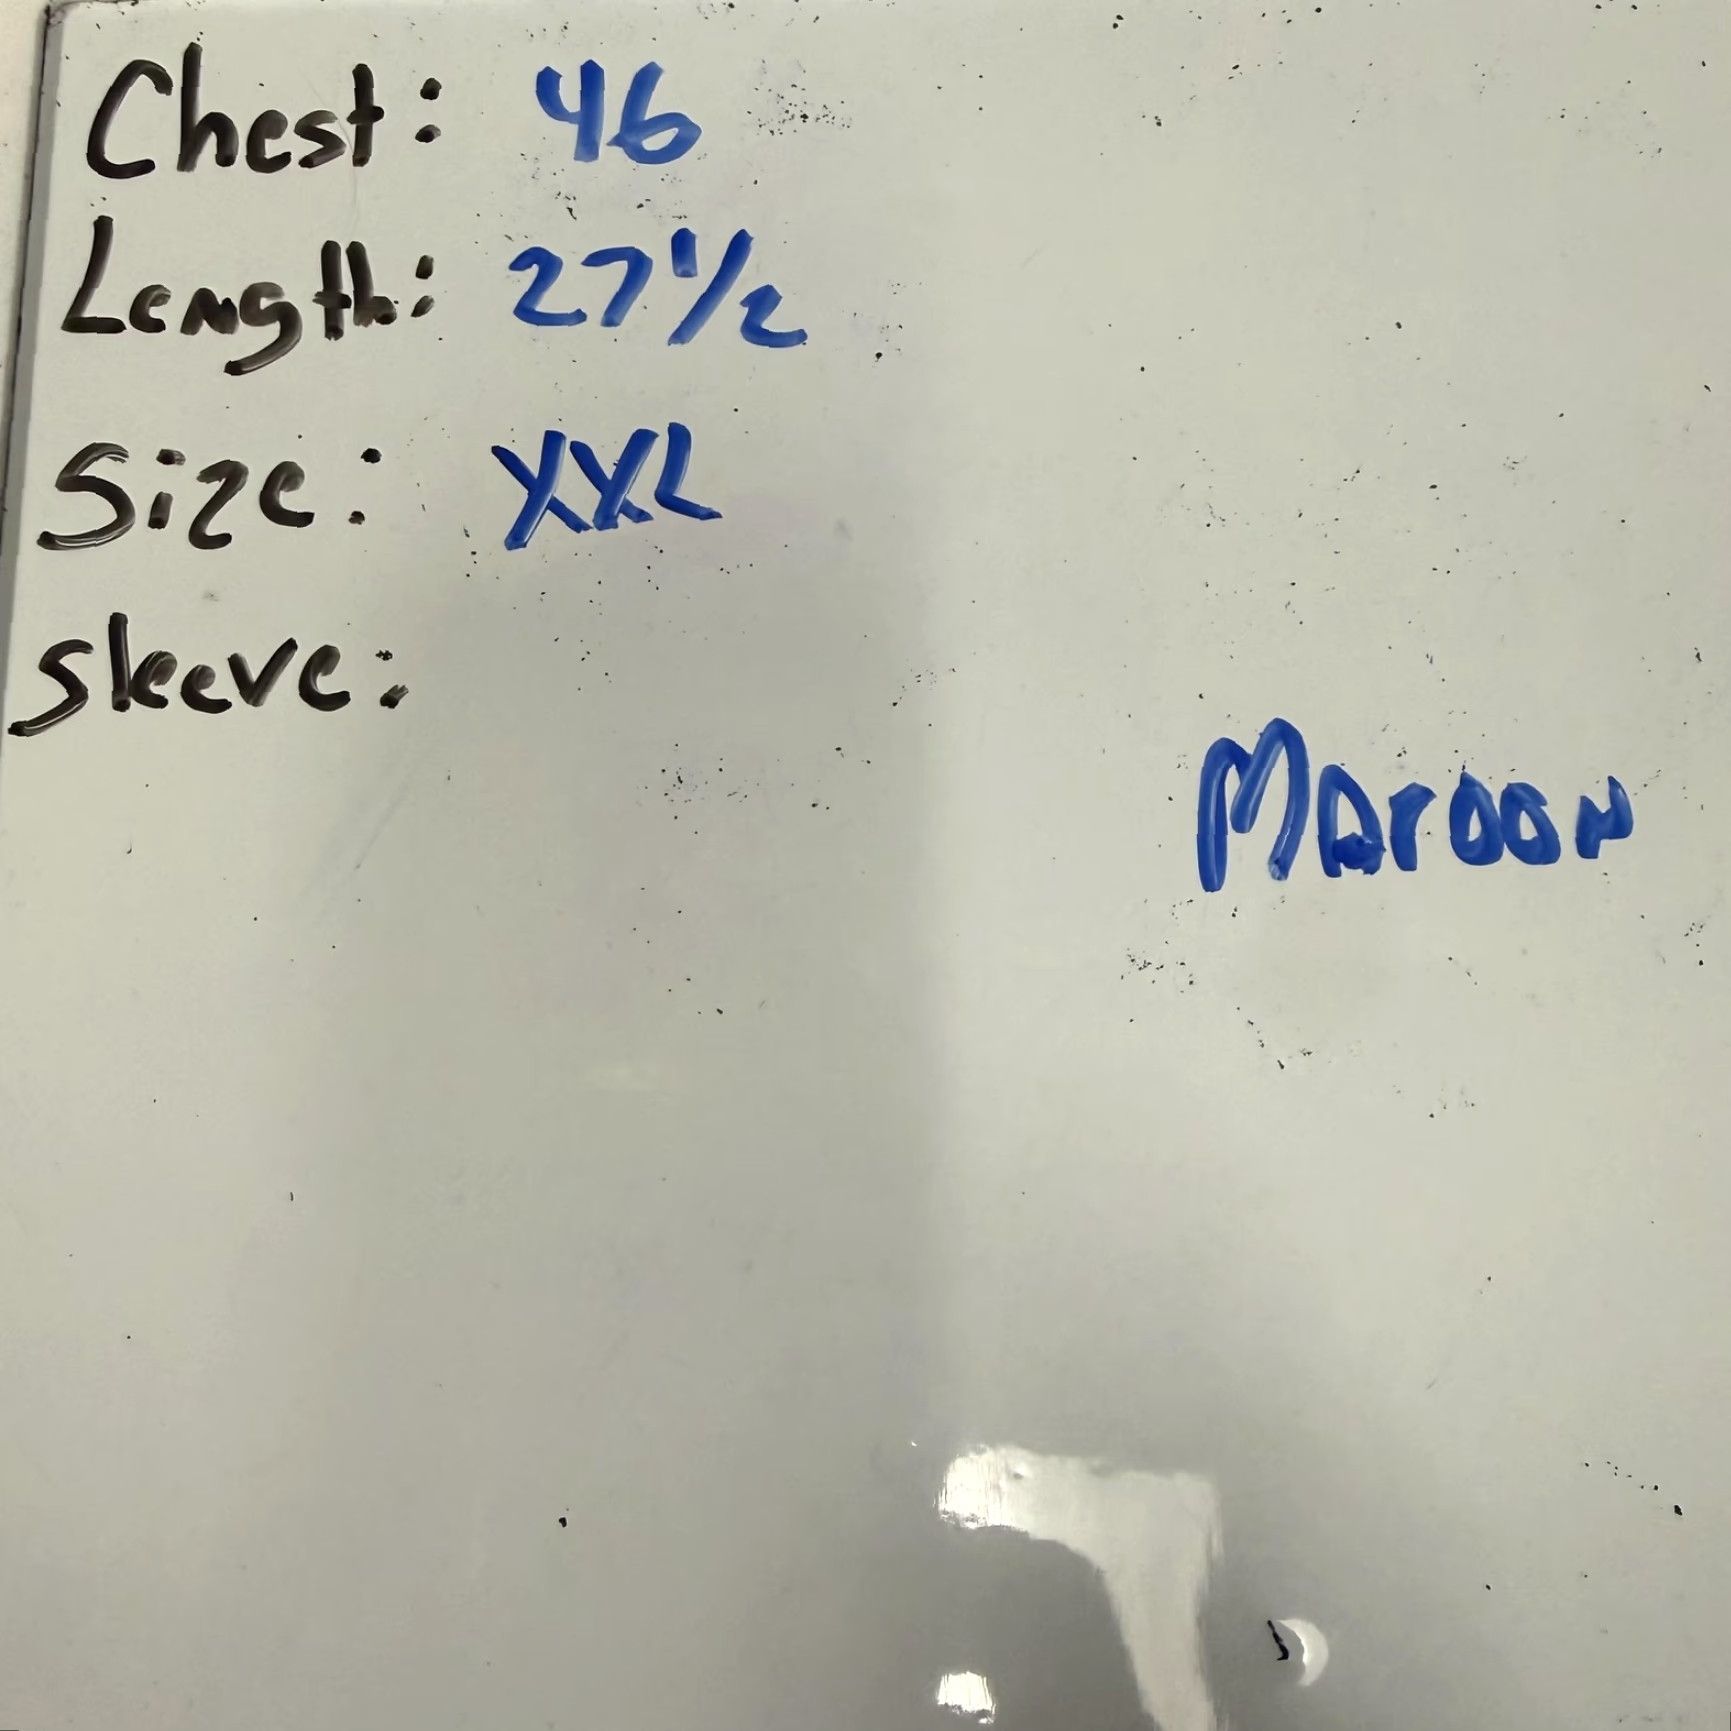 Chest: 46
Length: 27 1/2
Size: XXL
Sleeve:
Maroon